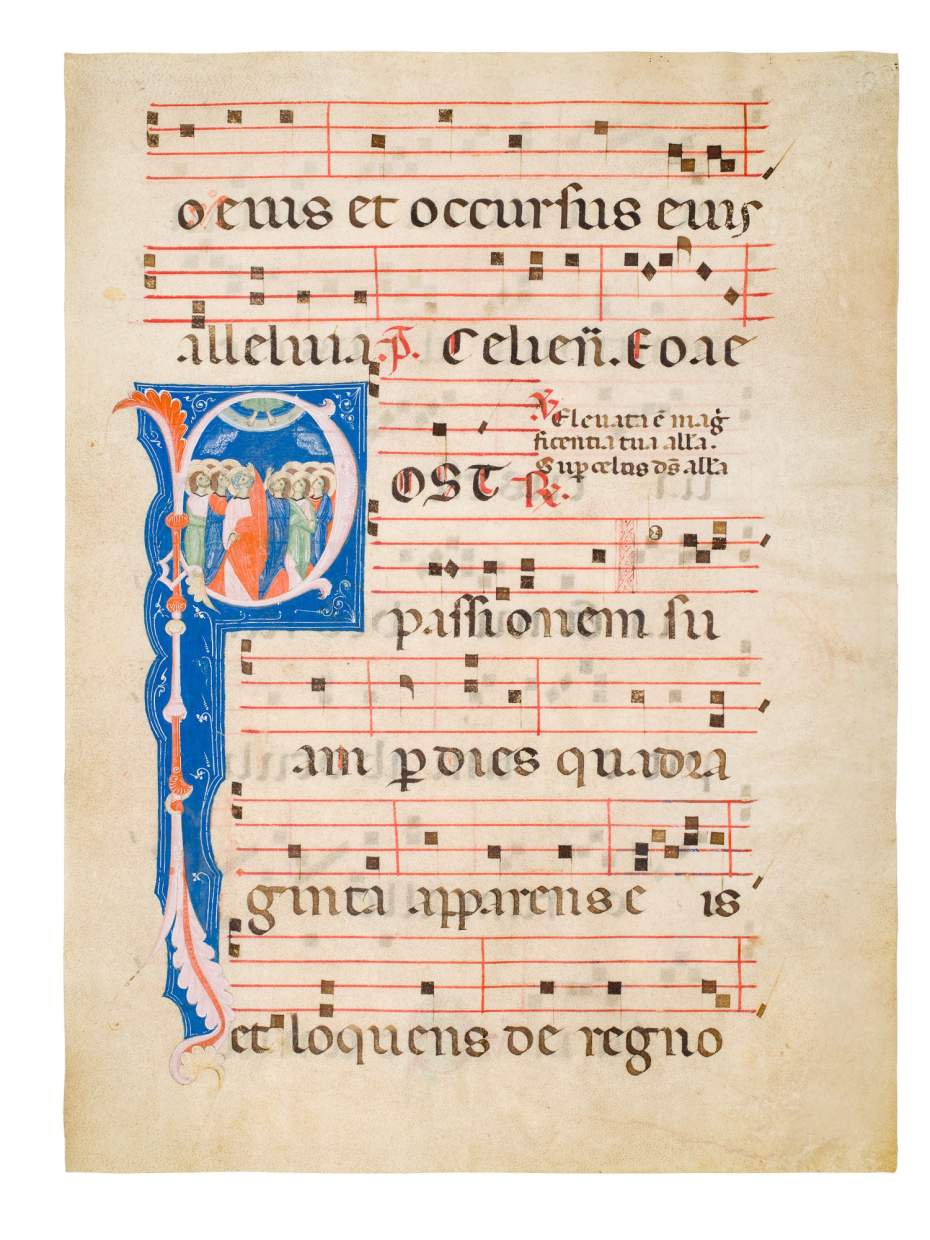 o eius et occursus eius
alleluia. p̄. Celi en̄. Eo ae
℣ Eleuata ē mag̅
ficentia tua alla.
Sup celos d̄s alla
POST ℟.
passionem su
am p dies quadra
ginta apparens e is
et loquens de regno